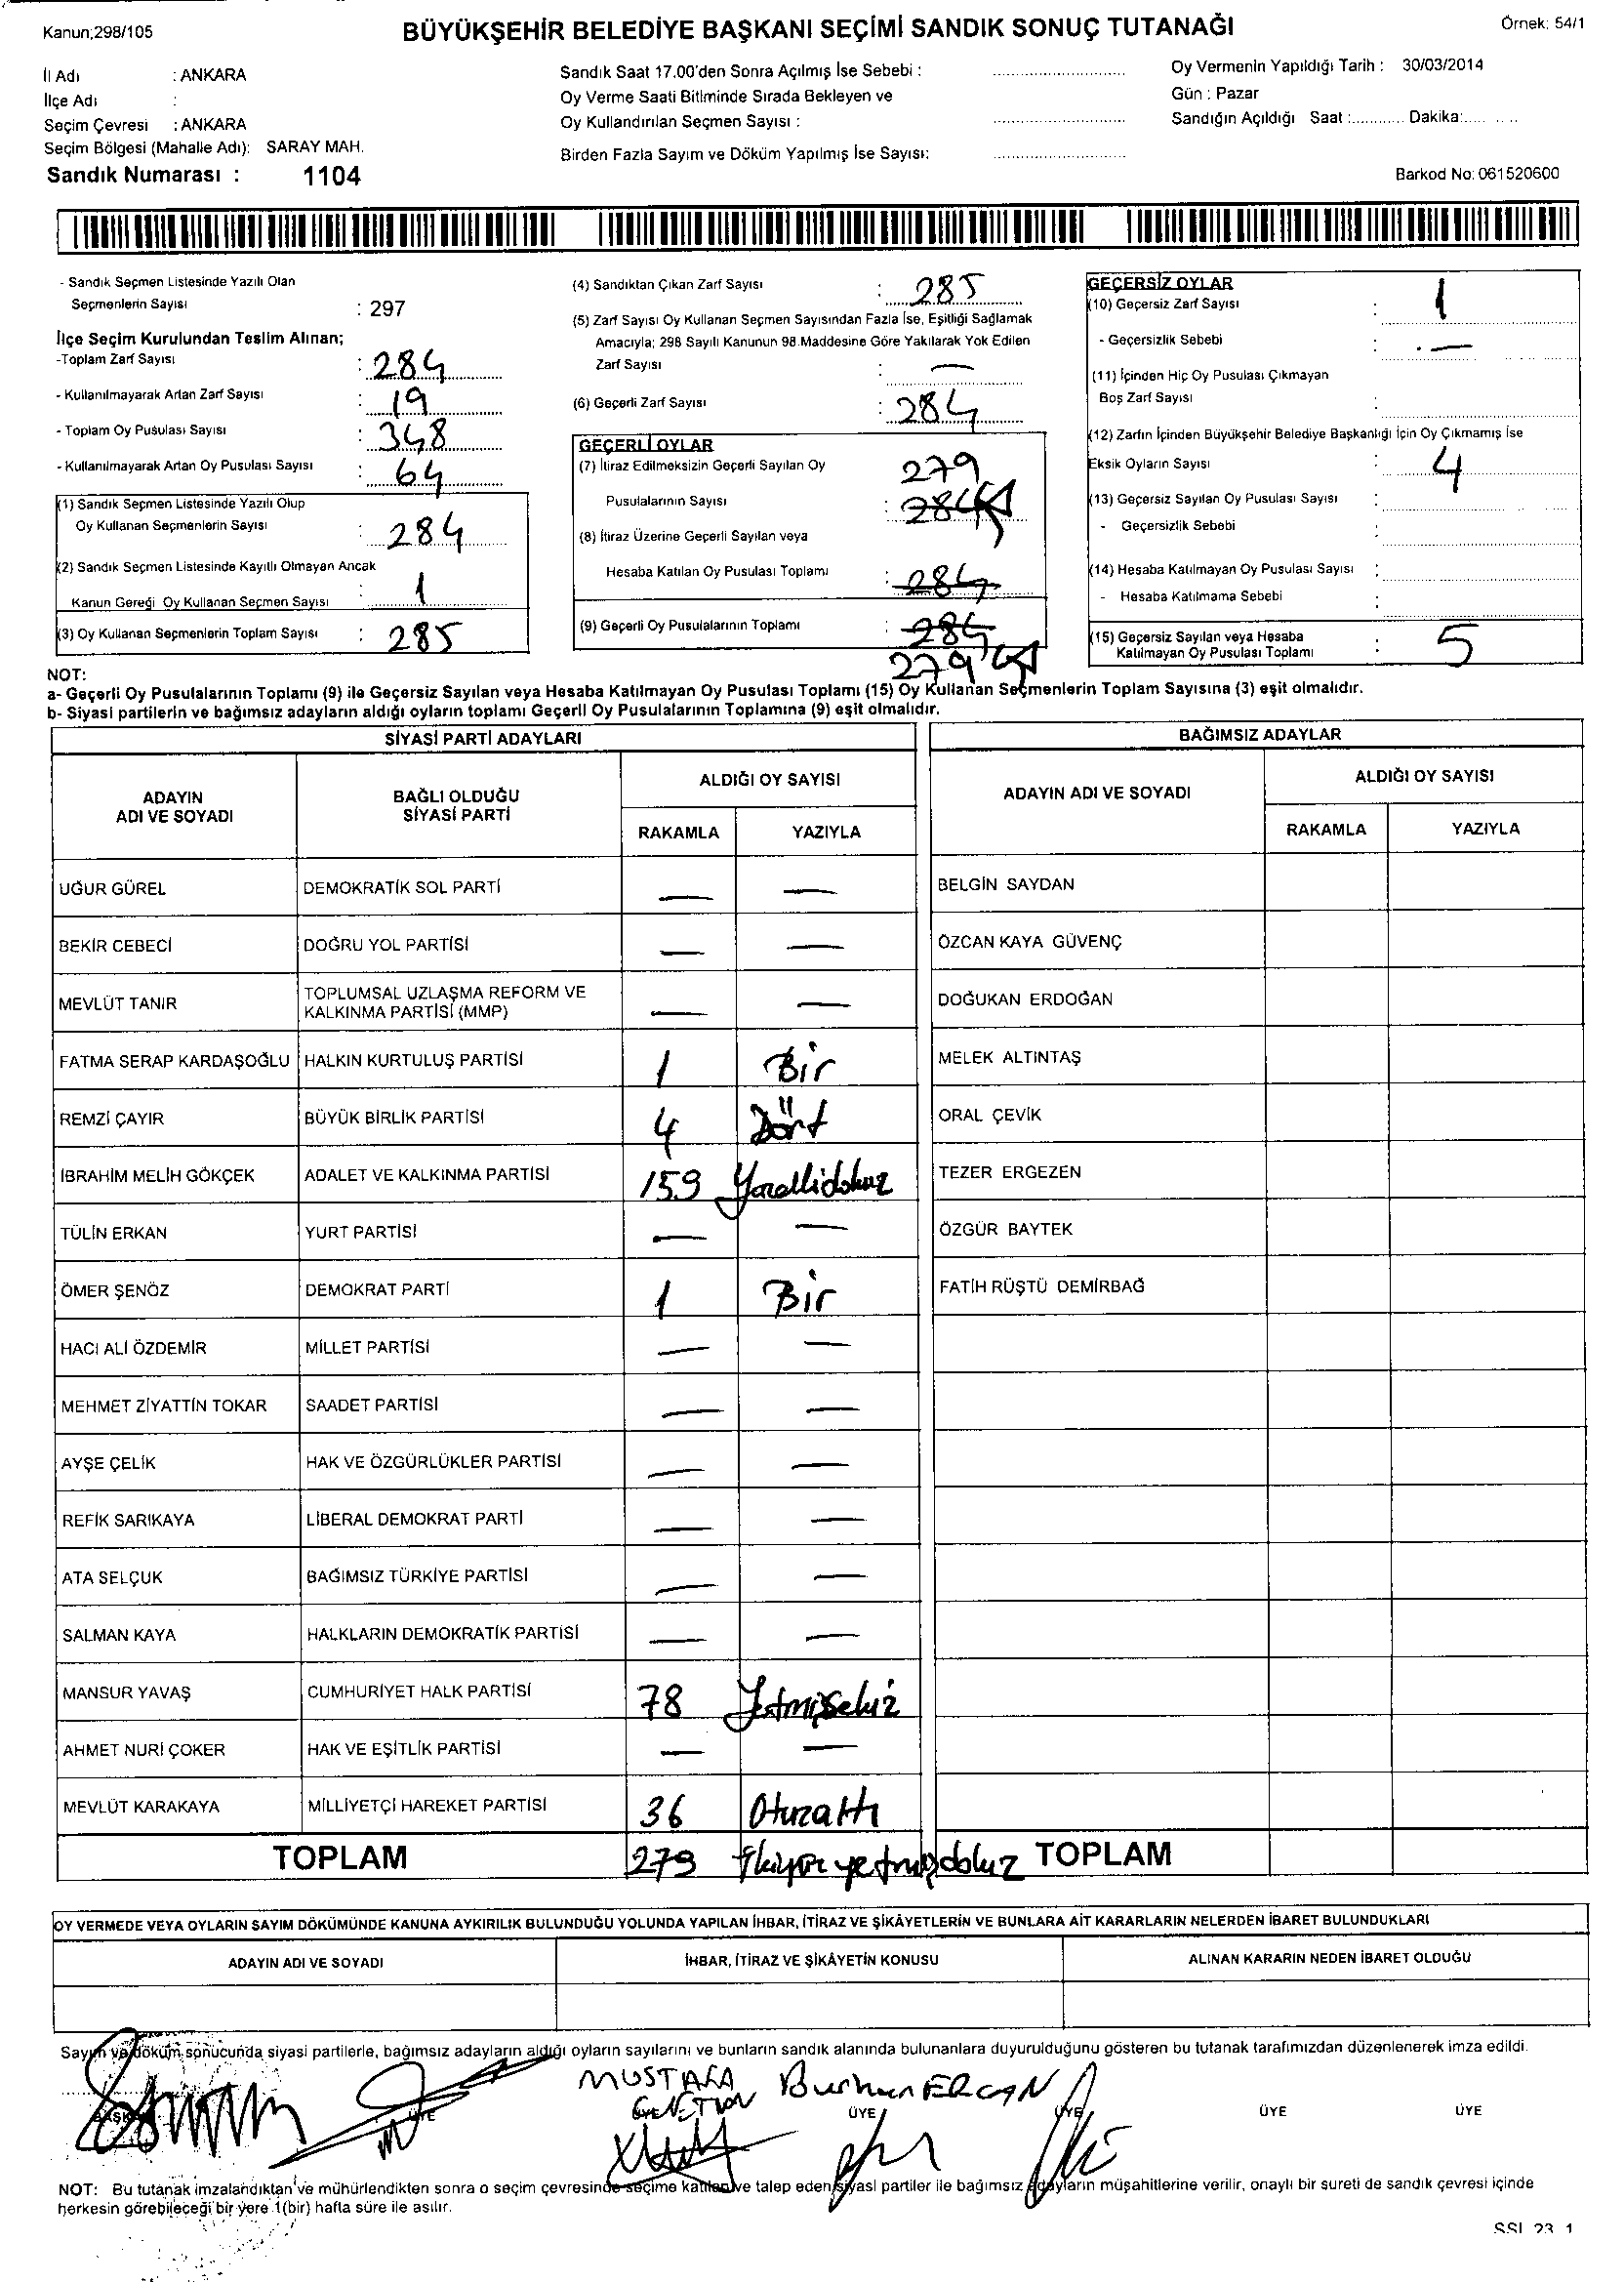 Kanun;298/105
BÜYÜKŞEHİR BELEDİYE BAŞKANI SEÇİMİ SANDIK SONUÇ TUTANAĞI
Örnek: 54/1
İl Adı : ANKARA
İlçe Adı :
Seçim Çevresi : ANKARA
Seçim Bölgesi (Mahalle Adı): SARAY MAH.
Sandık Numarası : 1104
Sandık Saat 17.00'den Sonra Açılmış İse Sebebi :
Oy Verme Saati Bitiminde Sırada Bekleyen ve
Oy Kullandırılan Seçmen Sayısı :
Birden Fazla Sayım ve Döküm Yapılmış İse Sayısı:
Oy Vermenin Yapıldığı Tarih : 30/03/2014
Gün : Pazar
Sandığın Açıldığı Saat :........... Dakika:.... .. ..
Barkod No: 061520600
- Sandık Seçmen Listesinde Yazılı Olan
Seçmenlerin Sayısı : 297
İlçe Seçim Kurulundan Teslim Alınan;
-Toplam Zarf Sayısı : 284
- Kullanılmayarak Artan Zarf Sayısı : 19
- Toplam Oy Pusulası Sayısı : 348
- Kullanılmayarak Artan Oy Pusulası Sayısı : 64
(1) Sandık Seçmen Listesinde Yazılı Olup
Oy Kullanan Seçmenlerin Sayısı : 284
(2) Sandık Seçmen Listesinde Kayıtlı Olmayan Ancak
Kanun Gereği Oy Kullanan Seçmen Sayısı : 1
(3) Oy Kullanan Seçmenlerin Toplam Sayısı : 285
(4) Sandıktan Çıkan Zarf Sayısı : 285
(5) Zarf Sayısı Oy Kullanan Seçmen Sayısından Fazla İse, Eşitliği Sağlamak
Amacıyla; 298 Sayılı Kanunun 98.Maddesine Göre Yakılarak Yok Edilen
Zarf Sayısı : —
(6) Geçerli Zarf Sayısı : 284
GEÇERLİ OYLAR
(7) İtiraz Edilmeksizin Geçerli Sayılan Oy 279
Pusulalarının Sayısı : 284
(8) İtiraz Üzerine Geçerli Sayılan veya
Hesaba Katılan Oy Pusulası Toplamı : 284
(9) Geçerli Oy Pusulalarının Toplamı : 284
279
GEÇERSİZ OYLAR
(10) Geçersiz Zarf Sayısı : 1
- Geçersizlik Sebebi : —
(11) İçinden Hiç Oy Pusulası Çıkmayan
Boş Zarf Sayısı :
(12) Zarfın İçinden Büyükşehir Belediye Başkanlığı İçin Oy Çıkmamış İse
Eksik Oyların Sayısı : 4
(13) Geçersiz Sayılan Oy Pusulası Sayısı :
- Geçersizlik Sebebi :
(14) Hesaba Katılmayan Oy Pusulası Sayısı :
- Hesaba Katılmama Sebebi :
(15) Geçersiz Sayılan veya Hesaba
Katılmayan Oy Pusulası Toplamı : 5
NOT:
a- Geçerli Oy Pusulalarının Toplamı (9) ile Geçersiz Sayılan veya Hesaba Katılmayan Oy Pusulası Toplamı (15) Oy Kullanan Seçmenlerin Toplam Sayısına (3) eşit olmalıdır.
b- Siyasi partilerin ve bağımsız adayların aldığı oyların toplamı Geçerli Oy Pusulalarının Toplamına (9) eşit olmalıdır.
SİYASİ PARTİ ADAYLARI
ADAYIN ADI VE SOYADI
BAĞLI OLDUĞU SİYASİ PARTİ
ALDIĞI OY SAYISI
RAKAMLA YAZIYLA
UĞUR GÜREL DEMOKRATİK SOL PARTİ — —
BEKİR CEBECİ DOĞRU YOL PARTİSİ — —
MEVLÜT TANIR TOPLUMSAL UZLAŞMA REFORM VE KALKINMA PARTİSİ (MMP) — —
FATMA SERAP KARDAŞOĞLU HALKIN KURTULUŞ PARTİSİ 1 Bir
REMZİ ÇAYIR BÜYÜK BİRLİK PARTİSİ 4 Dört
İBRAHİM MELİH GÖKÇEK ADALET VE KALKINMA PARTİSİ 159 Yüzellidokuz
TÜLİN ERKAN YURT PARTİSİ — —
ÖMER ŞENÖZ DEMOKRAT PARTİ 1 Bir
HACI ALİ ÖZDEMİR MİLLET PARTİSİ — —
MEHMET ZİYATTİN TOKAR SAADET PARTİSİ — —
AYŞE ÇELİK HAK VE ÖZGÜRLÜKLER PARTİSİ — —
REFİK SARIKAYA LİBERAL DEMOKRAT PARTİ — —
ATA SELÇUK BAĞIMSIZ TÜRKİYE PARTİSİ — —
SALMAN KAYA HALKLARIN DEMOKRATİK PARTİSİ — —
MANSUR YAVAŞ CUMHURİYET HALK PARTİSİ 78 Yetmişsekiz
AHMET NURİ ÇOKER HAK VE EŞİTLİK PARTİSİ — —
MEVLÜT KARAKAYA MİLLİYETÇİ HAREKET PARTİSİ 36 Otuzaltı
TOPLAM 279 İkiyüzyetmişdokuz
BAĞIMSIZ ADAYLAR
ADAYIN ADI VE SOYADI
ALDIĞI OY SAYISI
RAKAMLA YAZIYLA
BELGİN SAYDAN
ÖZCAN KAYA GÜVENÇ
DOĞUKAN ERDOĞAN
MELEK ALTINTAŞ
ORAL ÇEVİK
TEZER ERGEZEN
ÖZGÜR BAYTEK
FATİH RÜŞTÜ DEMİRBAĞ
TOPLAM
OY VERMEDE VEYA OYLARIN SAYIM DÖKÜMÜNDE KANUNA AYKIRILIK BULUNDUĞU YOLUNDA YAPILAN İHBAR, İTİRAZ VE ŞİKÂYETLERİN VE BUNLARA AİT KARARLARIN NELERDEN İBARET BULUNDUKLARI
ADAYIN ADI VE SOYADI İHBAR, İTİRAZ VE ŞİKÂYETİN KONUSU ALINAN KARARIN NEDEN İBARET OLDUĞU
Sayım ve döküm sonucunda siyasi partilerle, bağımsız adayların aldığı oyların sayılarını ve bunların sandık alanında bulunanlara duyurulduğunu gösteren bu tutanak tarafımızdan düzenlenerek imza edildi.
MUSTAFA Burhan ERCAN
ÜYE ÜYE ÜYE ÜYE ÜYE
NOT: Bu tutanak imzalandıktan ve mühürlendikten sonra o seçim çevresinde seçime katılan ve talep eden siyasi partiler ile bağımsız adayların müşahitlerine verilir, onaylı bir sureti de sandık çevresi içinde
herkesin görebileceği bir yere 1(bir) hafta süre ile asılır.